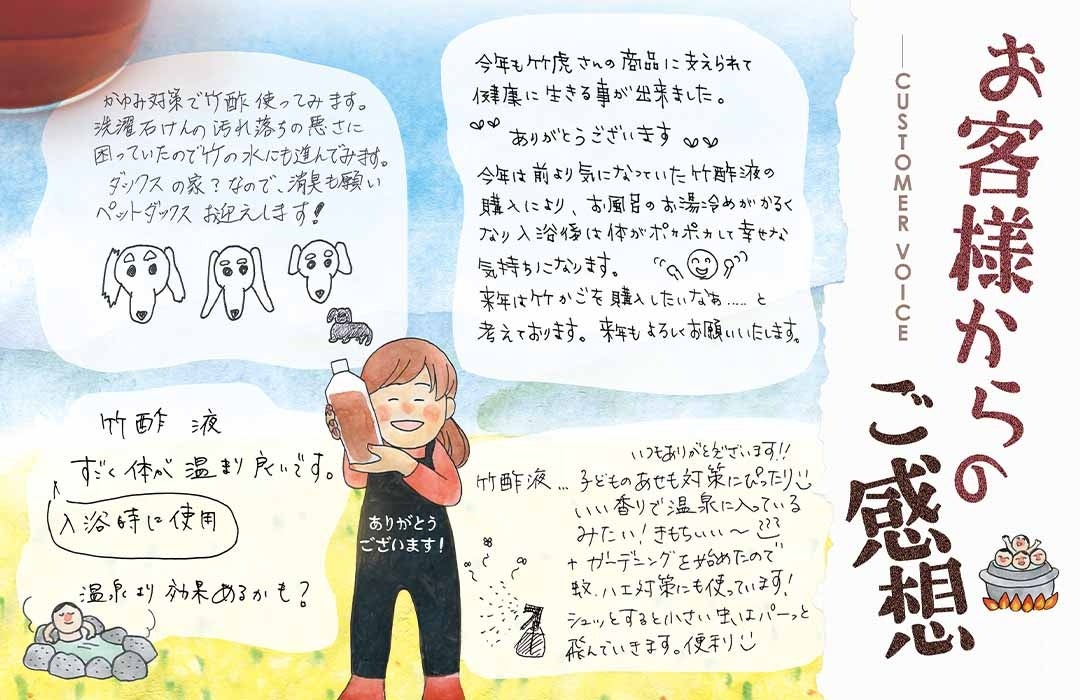 お客様からの
ご感想
CUSTOMER VOICE
今年も竹虎さんの商品に支えられて
健康に生きる事が出来ました。
ありがとうございます
今年は前より気になっていた竹酢液の
購入により、お風呂のお湯冷めがかるく
なり入浴後は体がポカポカして幸せな
気持ちになります。
来年は竹かごを購入したいなぁ.....と
考えております。来年もよろしくお願いいたします。
かゆみ対策で竹酢使ってみます。
洗濯石けんの汚れ落ちの悪さに
困っていたので竹の水にも進んでみます。
ダックスの家?なので、消臭も願い
ペットダックスお迎えします!
竹酢液
すごく体が温まり良いです。
入浴時に使用
温泉より効果あるかも?
ありがとう
ございます!
いつもありがとうございます!!
竹酢液...子どものあせも対策にぴったり
いい香りで温泉に入っている
みたい!きもちぃぃ〜
+ガーデニングを始めたので
蚊、ハエ対策にも使っています!
シュッとすると小さい虫はパーっと
飛んでいきます。便利